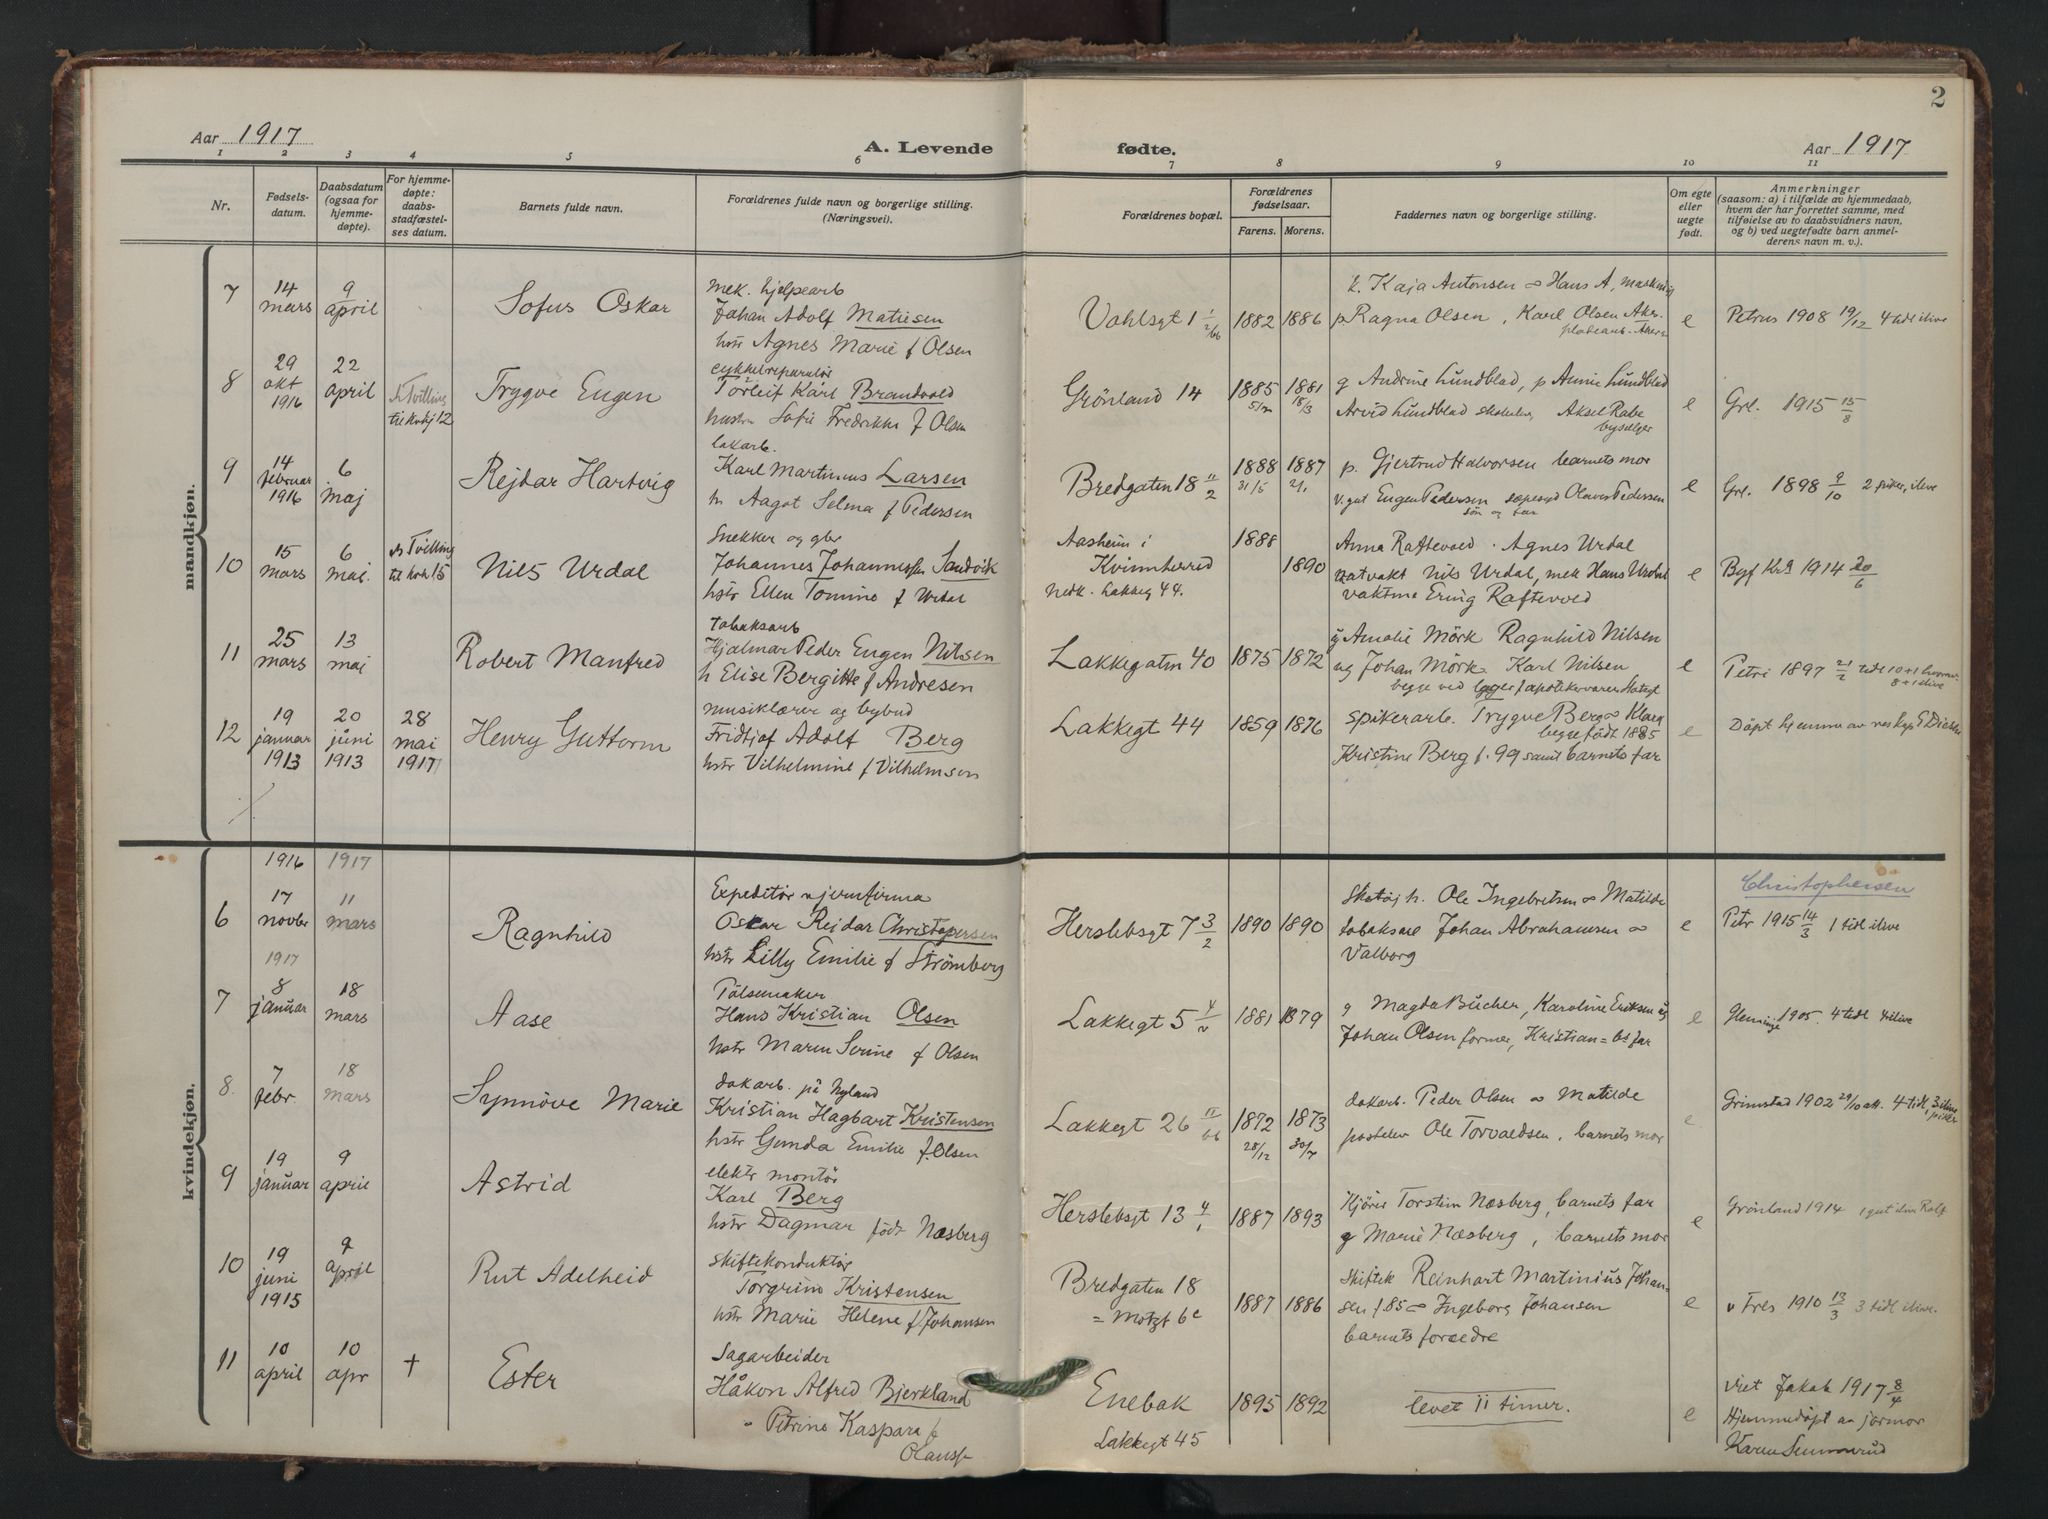 2
Aar 1917
A. Levende fødte.
Aar 1917
1 2 3 4 5 6 7 8 9 10 11
Nr.
Fødsels-
datum.
Daabsdatum
(ogsaa for
hjemme-
døpte).
For hjemme-
døpte:
daabs-
stadfæstel-
ses datum.
Barnets fulde navn.
Forældrenes fulde navn og borgerlige stilling.
(Næringsvei).
Forældrenes bopæl.
Forældrenes
fødselsaar.
Farens. Morens.
Faddernes navn og borgerlige stilling.
Om egte
eller
uegte
født.
Anmerkninger
(saasom: a) i tilfælde av hjemmedaab,
hvem der har forrettet samme, med
tilføielse av to daabsvidners navn,
og b) ved uegtefødte barn anmel-
derens navn m. v.).
mandkjøn.
7
14
mars
9
april
Sofus Oskar
mek. hjelpearb
Johan Adolf Matiesen
hstr Agnes Marie f Olsen
Vahlsgt 1
1882 1886
k. Kaja Antonsen ∞ Hans A,
p Ragna Olsen, Karl Olsen Aker
e
Petrus 1908 19/12 4 tidl ilive
8
29
okt
1916
22
april
Tvilling
12
Trygve Eugen
cykkelreparatör
Torleif Karl Brandvold
hustru Sofie Fredrikke f Olsen
Grönland 14
1885 1881
18/3
g Andrine Lundblad, p Annie Lundblad
Arvid Lundblad Aksel Rabe
byselger
e
Grl. 1915 15/8
9
14
februar
1916
6
maj
Rejdar Hartvig
lakarb.
Karl Martinius Larsen
h Aagot Selma f Pedersen
Bredgaten 18 11/2
1888 1887
31/5 2/1
p. Gjertrud Halvorsen barnets mor
v. gut Eugen Pedersen Olaves Pedersen
sön og far
e
Grl. 1898 9/10 2 piker, ilive
10
15
mars
6
mai.
Tvilling
15
Nils Urdal
Snekker og gbr
Johannes Johannessen Sandvik
hstr Ellen Tomine f Urdal
Aasheim i
Kvinnherred
Nedk. Lakkeg 44.
1888
1890
Anna Raftevold. Agnes Urdal
natvakt Nils Urdal, mek Hans Urdal
vaktma Ering Raftevold
e
Bgf Krs 1914 20/6
11
25
mars
13
mai
Robert Manfred
tobaksarb
Hjalmar Peder Eugen Nilsen
h Elise Bergitte f Andresen
Lakkegaten 40
1875 1872
g Amalie Mörk Ragnhild Nilsen
ug Johan Mörk Karl Nilsen
begge ved lager
e
Petri 1897 21/2 tidl 10+1
8+1 ilive
12
19
januar
1913
20
juni
1913
28
mai
1917
Henry Guttorm
musiklærer og bybud
Fridtjof Adolf Berg
hstr Vilhelmine f Vilhelmsen
Lakkegt 44
1859 1876
spikerarb. Trygve Berg ∞ Klara
begge födt 1885
Kristine Berg f. 99 samt barnets far
e
Döpt hjemme av
kvindekjøn.
1916 1917
6
17
novbr
11
mars
Ragnhild
Expeditör i jernfirma
Oskar Rejdar Christopersen
hstr Lilly Emilie f Strömberg
Herslebsgt 7 3/2
1890 1890
Skotöj h. Ole Ingebretsen ∞ Matilde
tobaksarb Johan Abrahamsen ∞
Valborg
e
Christophersen
Petr 1915 14/3 1 tidl ilive
1917
7
8
januar
18
mars
Aase
Pölsemaker
Hans Kristian Olsen
hstr Maren Serine f Olsen
Lakkegt 5
1881 1879
g Magda Bücher, Karoline Eriksen ug
Johan Olsen former, Kristian = bs far
e
Glemmige 1905. 4 tidl 4 ilive
8
7
febr.
18
mars
Synnöve Marie
dokarb. på Nyland
Kristian Hagbart Kristensen
hstr Gunda Emilie f. Olsen
Lakkegt 26
1872 1873
28/12 30/7
dokarb. Peder Olsen ∞ Matilde
postelev Ole Torvaldsen, barnets mor
e
Grimstad 1902 4 tidl, 3 ilive
piker
9
19
januar
9
april
Astrid
elektr montör
Karl Berg
hstr Dagmar födt Næsberg
Herslebsgt 13 4/1
1887 1893
Kjörer Torstein Næsberg, barnets far
g Marie Næsberg, barnets mor
e
Grönland 1914 1 gut ilive Rolf
10
19
juni
1915
9
april
Rut Adelheid
skiftekonduktör
Torgrim Kristensen
hstr Marie Helene f Johansen
Bredgaten 18
= Motzgt 6c
1887 1886
skiftek Reinhart Martinius Johan-
sen f. 85 ∞ Ingeborg Johansen
barnets foreldre
e
v Fres 1910 13/3 3 tidl ilive.
11
10
april
10
apr
+
Ester
Sagarbeider
Håkon Alfred Bjerkland
" Petrine Kaspara f
Olaussen
Enebak
Lakkegt 45
1895 1892
levet 11 timer.
e
viet Jakob 1917 8/4
Hjemmedöpt av jormor
Karen